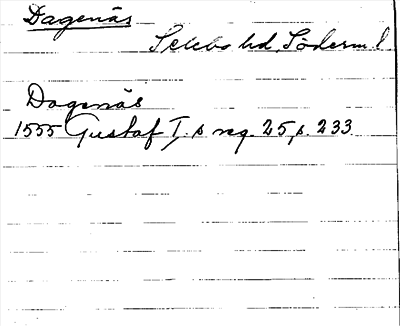 Dagenäs
Selebo hd, Söderm l
Dagenäs
1555 Gustaf I:s reg. 25, s. 233